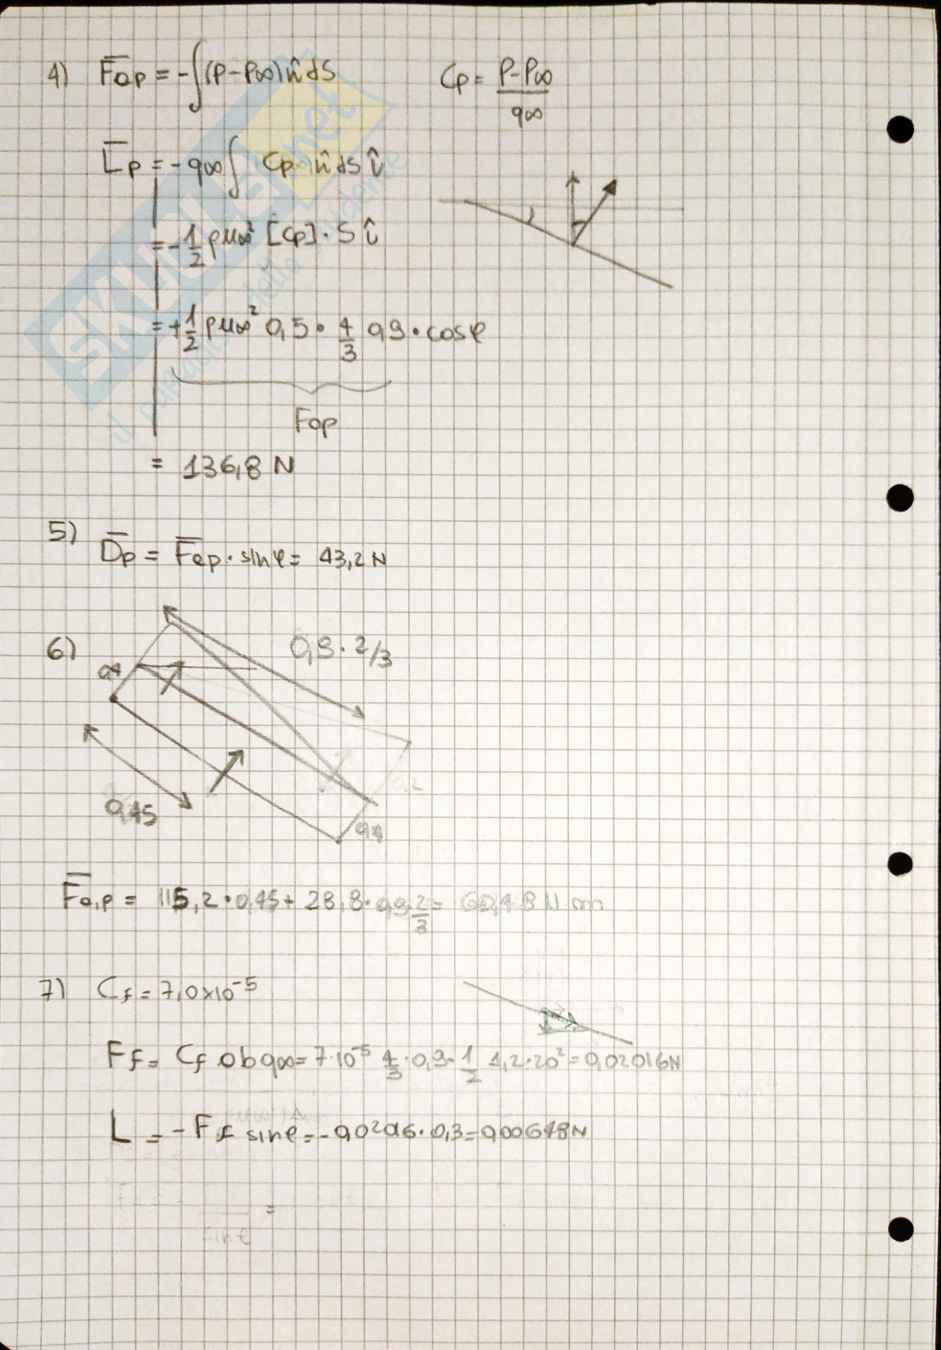 4) F̅a,p = -∫(P-P∞)n̂ dS    Cp = P-P∞ / q∞
L̅p = -q∞∫ Cp n̂ dS î
= -1/2 ρu∞² [Cp] · S î
= +1/2 ρu∞² 0,5 · 4/3 0,9 · cosφ
Fap
= 136,8 N
5) D̅p = F̅a,p · sinφ = 43,2 N
6) 0,9 · 2/3
0,45
F̅a,p = 115,2 · 0,45 + 28,8 · 0,9 2/3 = 60,48 N m
7) Cf = 7,0x10⁻⁵
Ff = Cf ab q∞ = 7·10⁻⁵ 4/3 · 0,9 · 1/2 1,2 · 20² = 0,02016 N
L = -Ff sinφ = -0,0206 · 0,3 = 0,00648 N
=
SKUOLA.net